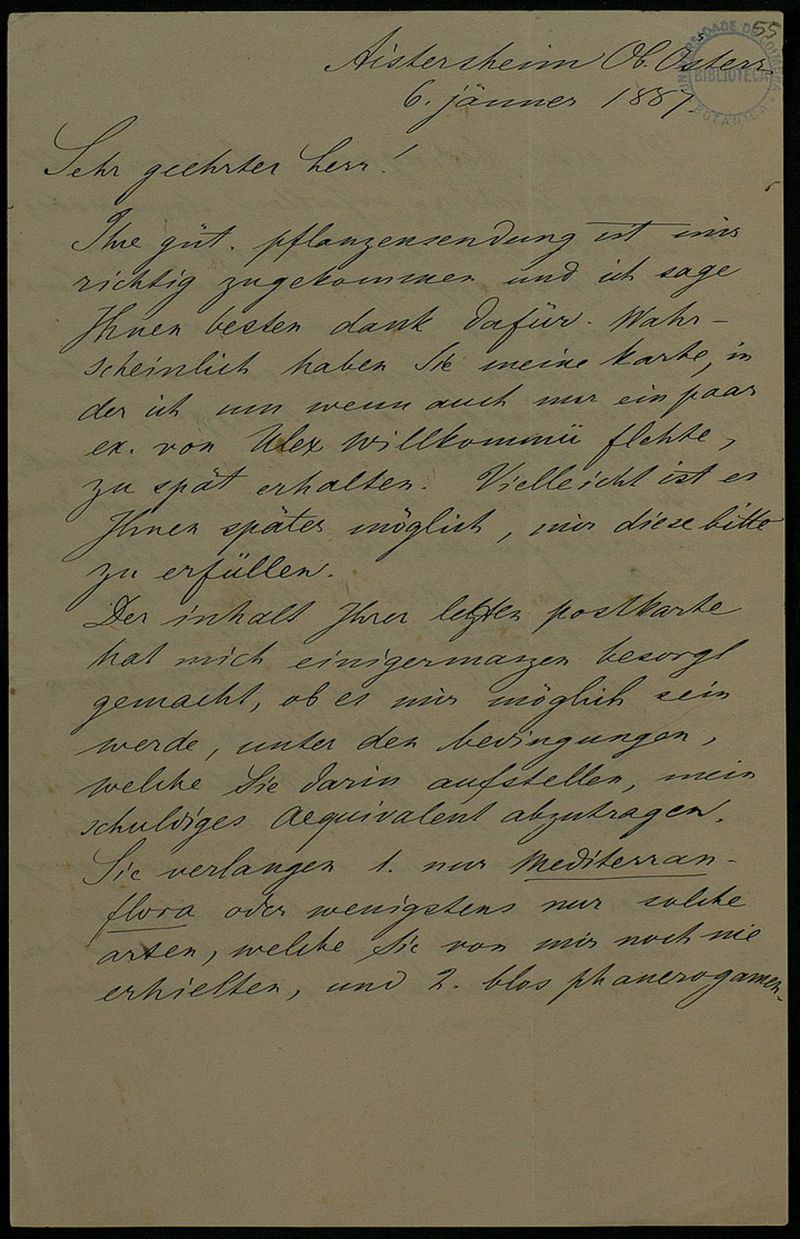 55
UNIVERSIDADE DE COIMBRA
BIBLIOTECA
BOTANICA
Aistersheim Ob. Österr.
6. jänner 1887.
Sehr geehrter herr!
Ihre güt. pflanzensendung ist mir
richtig zugekommen und ich sage
Ihnen besten dank dafür. Wahr-
scheinlich haben Sie meine karte, in
der ich um wenn auch nur ein paar
ex. von Ulex Willkommii flehte,
zu spät erhalten. Vielleicht ist es
Ihnen später möglich, mir diese bitte
zu erfüllen.
Der inhalt Ihrer letzten postkarte
hat mich einigermaszen besorgt
gemacht, ob es mir möglich sein
werde, unter den bedingungen,
welche Sie darin aufstellen, mein
schuldiges Aequivalent abzutragen.
Sie verlangen 1. nur Mediterran-
flora oder wenigstens nur solche
arten, welche Sie von mir noch nie
erhielten, und 2. blos phanerogamen.